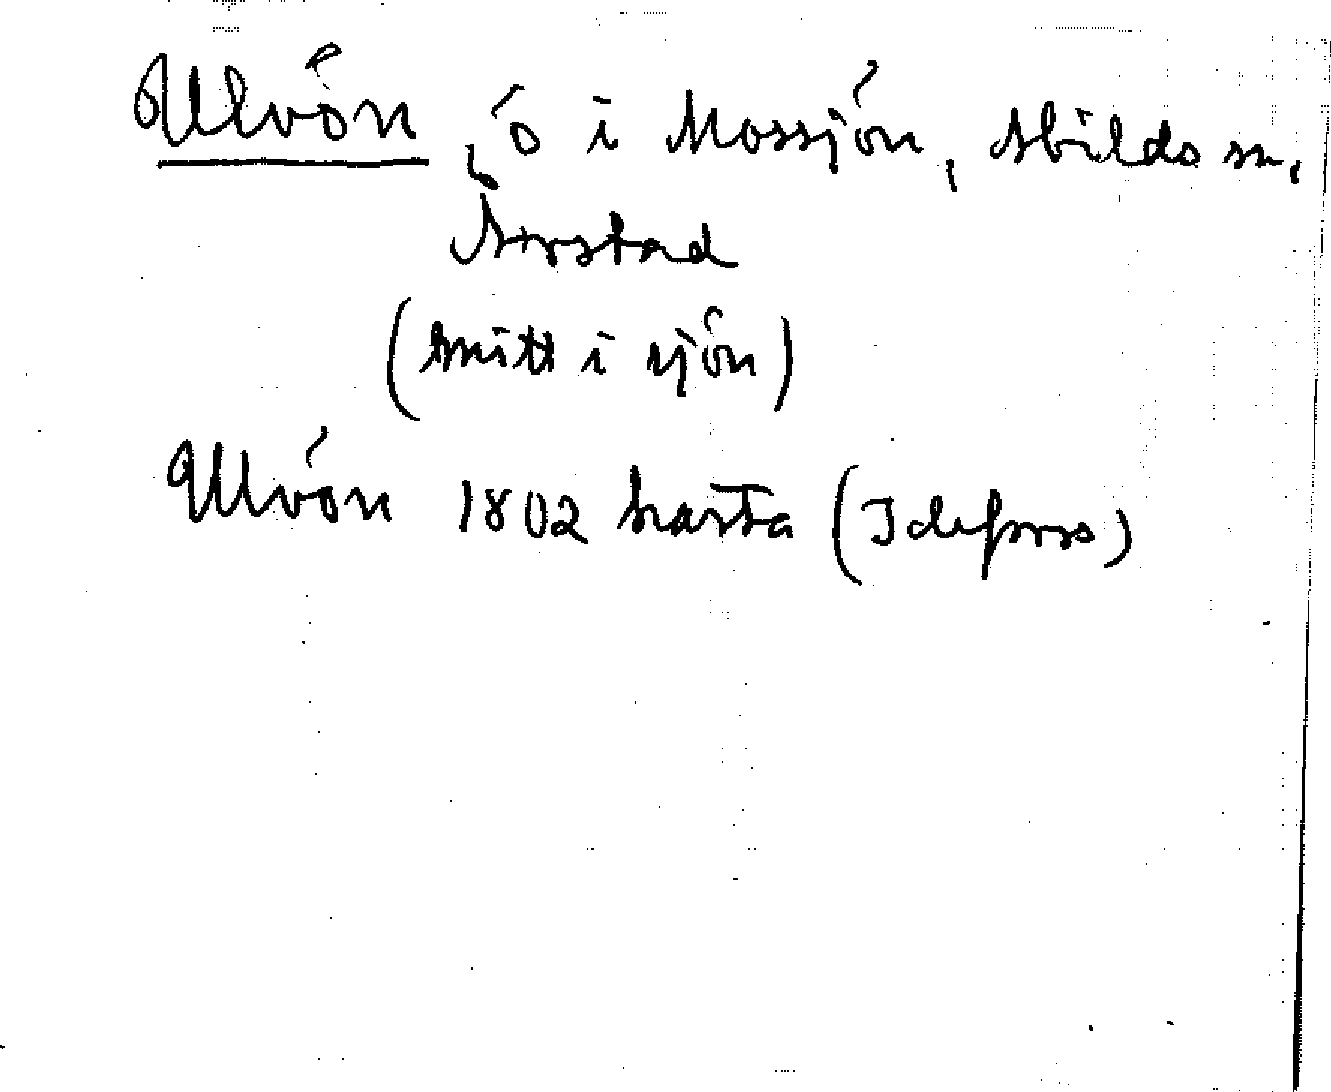 Ulvön, ö i Mossjön, Abilds sn,
Årstad
(mitt i sjön)
Ulvön 1802 karta (Idefors)